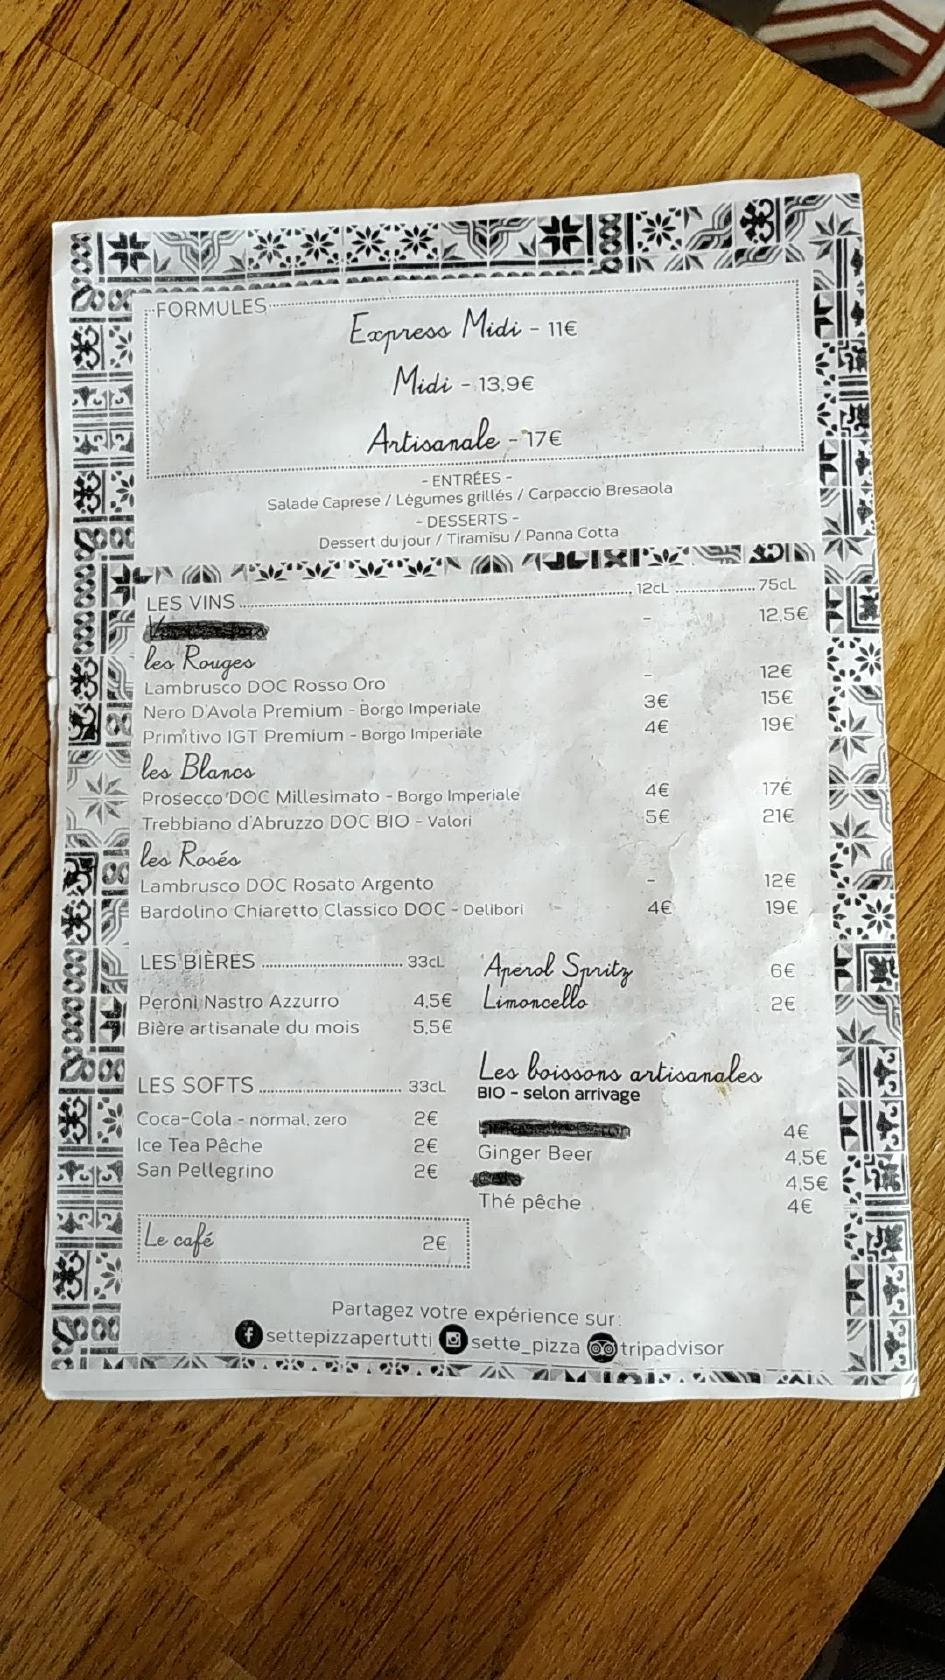 FORMULES
Express Midi - 11€
Midi - 13,9€
Artisanale - 17€
- ENTRÉES -
Salade Caprese / Légumes grillés / Carpaccio Bresaola
- DESSERTS -
Dessert du jour / Tiramisu / Panna Cotta
LES VINS 12cL 75cL
- 12,5€
les Rouges
Lambrusco DOC Rosso Oro - 12€
Nero D'Avola Premium - Borgo Imperiale 3€ 15€
Primitivo IGT Premium - Borgo Imperiale 4€ 19€
les Blancs
Prosecco DOC Millesimato - Borgo Imperiale 4€ 17€
Trebbiano d'Abruzzo DOC BIO - Valori 5€ 21€
les Rosés
Lambrusco DOC Rosato Argento - 12€
Bardolino Chiaretto Classico DOC - Delibori 4€ 19€
LES BIÈRES 33cL
Peroni Nastro Azzurro 4,5€
Bière artisanale du mois 5,5€
Aperol Spritz 6€
Limoncello 2€
LES SOFTS 33cL
Coca-Cola - normal, zero 2€
Ice Tea Pêche 2€
San Pellegrino 2€
Les boissons artisanales
BIO - selon arrivage
4€
Ginger Beer 4,5€
4,5€
Thé pêche 4€
Le café 2€
Partagez votre expérience sur:
settepizzapertutti sette_pizza tripadvisor